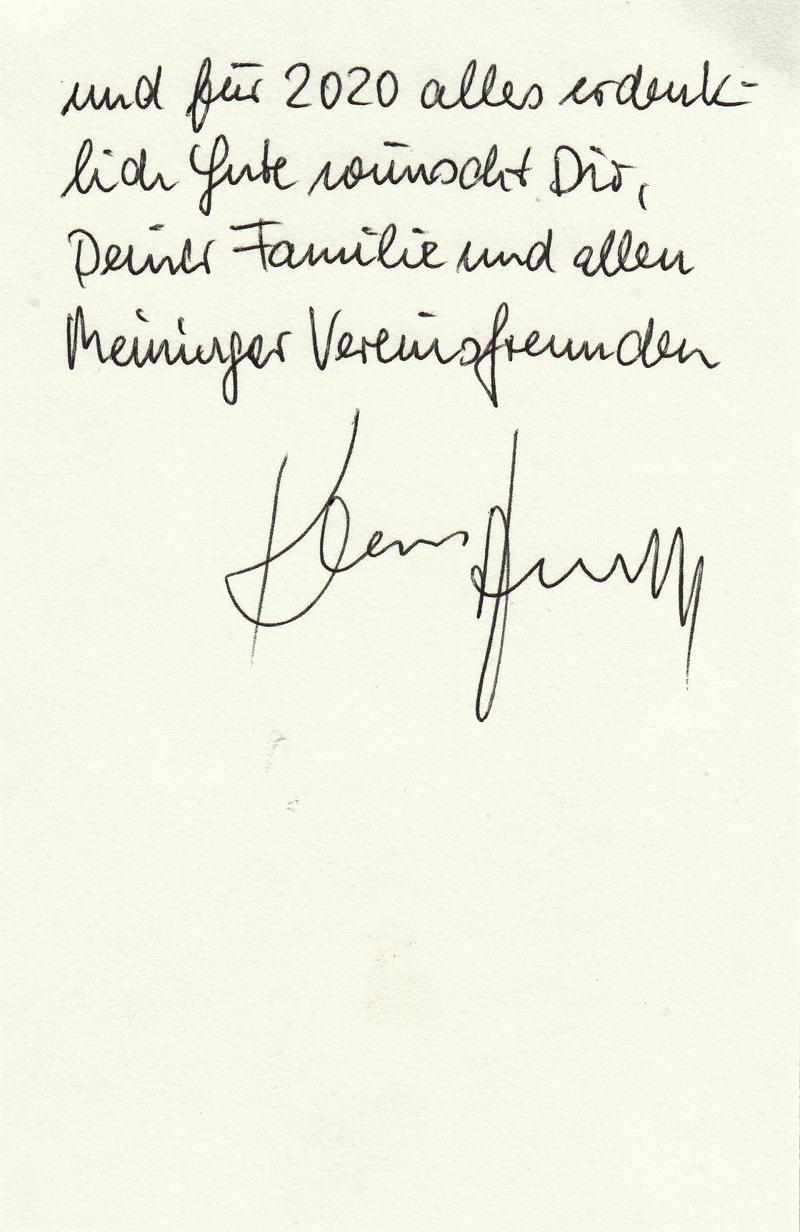 und für 2020 alles erdenk-
lich Gute wünscht Dir,
Deiner Familie und allen
Meininger Vereinsfreunden